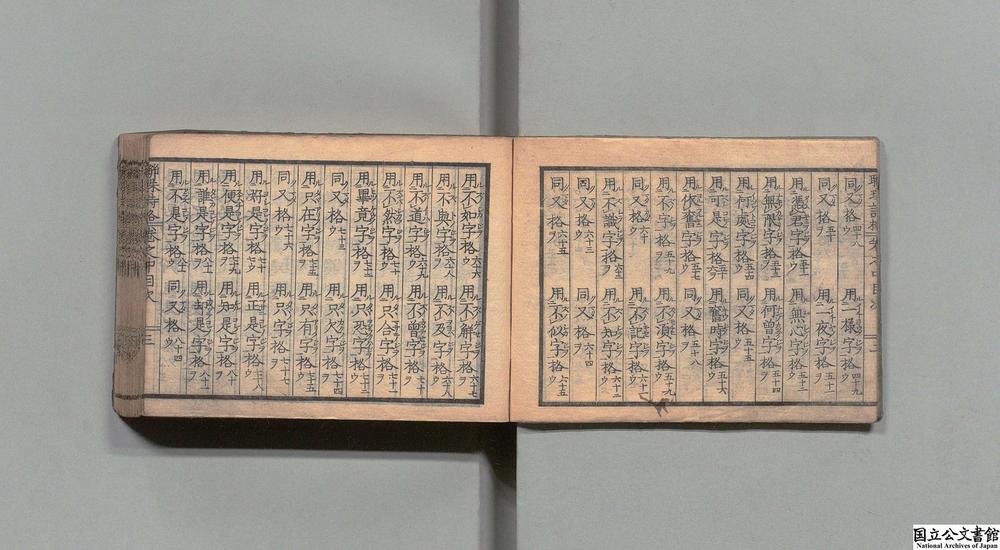 同又格四十八 用一樣字格四十九
同又格五十 用一夜字格五十一
用憑君字格五十一 用無心字格五十二
用無限字格五十三 用何曾字格五十四
用何處字格五十四 同又格五十五
用可是字格 用舊時字格五十六
用依舊字格五十七 同又格五十八
用不字格五十九 用不須字格五十九
同又格六十 用不記字格六十一
用不識字格 用不知字格
同又格六十三 同又格六十四
同又格六十五 用不似字格六十五
用不如字格六十六 用不解字格六十七
用不與字格六十八 用不及字格六十八
用不道字格六十九 用不曾字格七十
用不然字格 用只合字格
用畢竟字格 用只恐字格
同又格七十三 用只欠字格七十四
用只在字格七十五 用只有字格七十五
同又格七十六 用只字格七十七
用好是字格 用正是字格七十八
用便是字格七十九 用知是字格八十
用誰是字格 用却是字格
用不是字格 同又格八十四
聯珠詩格卷之中目次 三
国立公文書館
National Archives of Japan